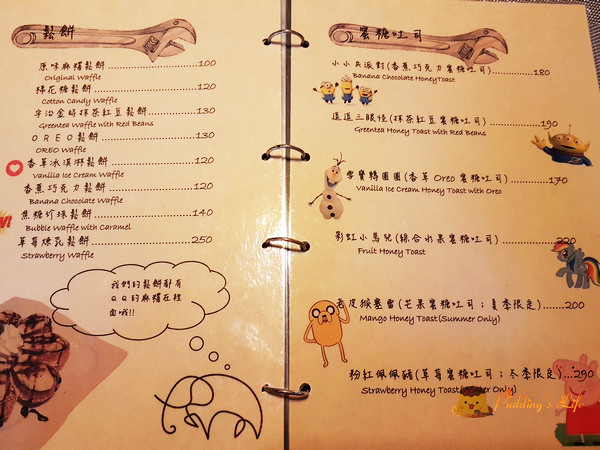 鬆餅
原味麻糬鬆餅 100
Original Waffle
棉花糖鬆餅 130
Cotton Candy Waffle
宇治金時抹茶紅豆鬆餅 130
Greentea Waffle with Red Beans
OREO鬆餅 130
OREO Waffle
香草冰淇淋鬆餅 120
Vanilla Ice Cream Waffle
香蕉巧克力鬆餅 120
Banana Chocolate Waffle
焦糖珍珠鬆餅 140
Bubble Waffle with Caramel
草莓煉乳鬆餅 250
Strawberry Waffle
我們的鬆餅都有
QQ的麻糬在裡
面哦!!
蜜糖吐司
小小兵派對(香蕉巧克力蜜糖吐司) 180
Banana Chocolate HoneyToast
逗逗三眼怪(抹茶紅豆蜜糖吐司) 190
Greentea Honey Toast with Red Beans
雪寶轉圈圈(香草Oreo蜜糖吐司) 170
Vanilla Ice Cream Honey Toast with Oreo
彩虹小馬兒(綜合水果蜜糖吐司) 220
Fruit Honey Toast
老皮猴塞雷(芒果蜜糖吐司;夏季限定) 200
Mango Honey Toast(Summer Only)
粉紅佩佩豬(草莓蜜糖吐司;冬季限定) 290
Strawberry Honey Toast(Winter Only)
Pudding's Life